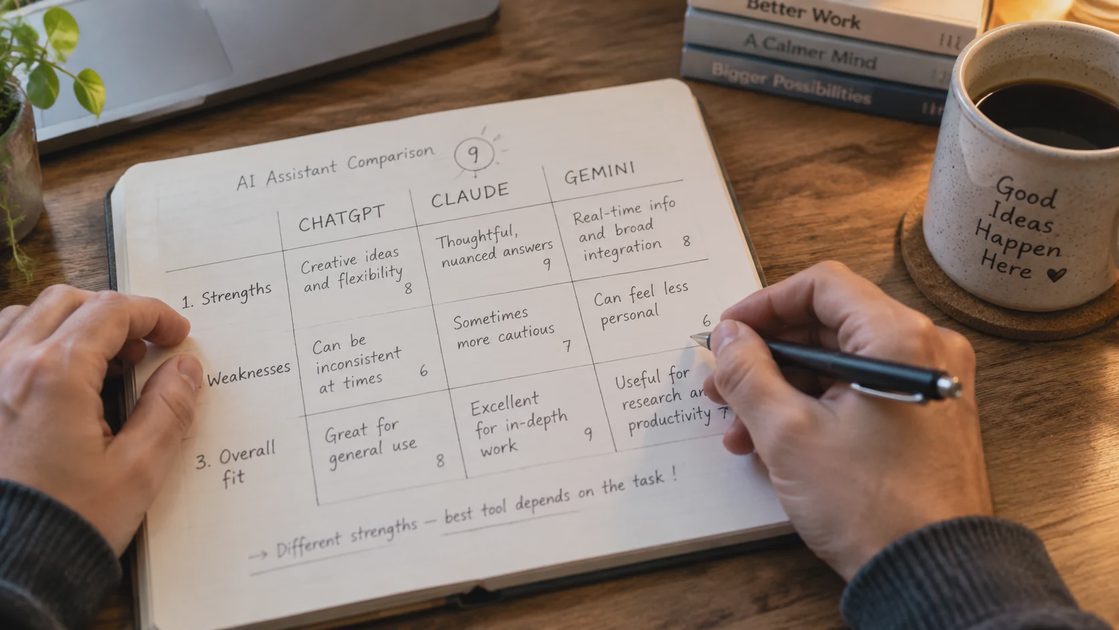 Better Work
A Calmer Mind
Bigger Possibilities
Good
Ideas
Happen
Here ♥
AI Assistant Comparison
9
CHATGPT
CLAUDE
GEMINI
1. Strengths
Creative ideas
and flexibility
8
Thoughtful,
nuanced answers
9
Real-time info
and broad
integration 8
. Weaknesses
Can be
inconsistent
at times 6
Sometimes
more cautious
7
Can feel less
personal
6
3. Overall
fit
Great for
general use
8
Excellent
for in-depth
work 9
Useful for
research an
productivity 7
→ Different strengths — best tool depends on the task !